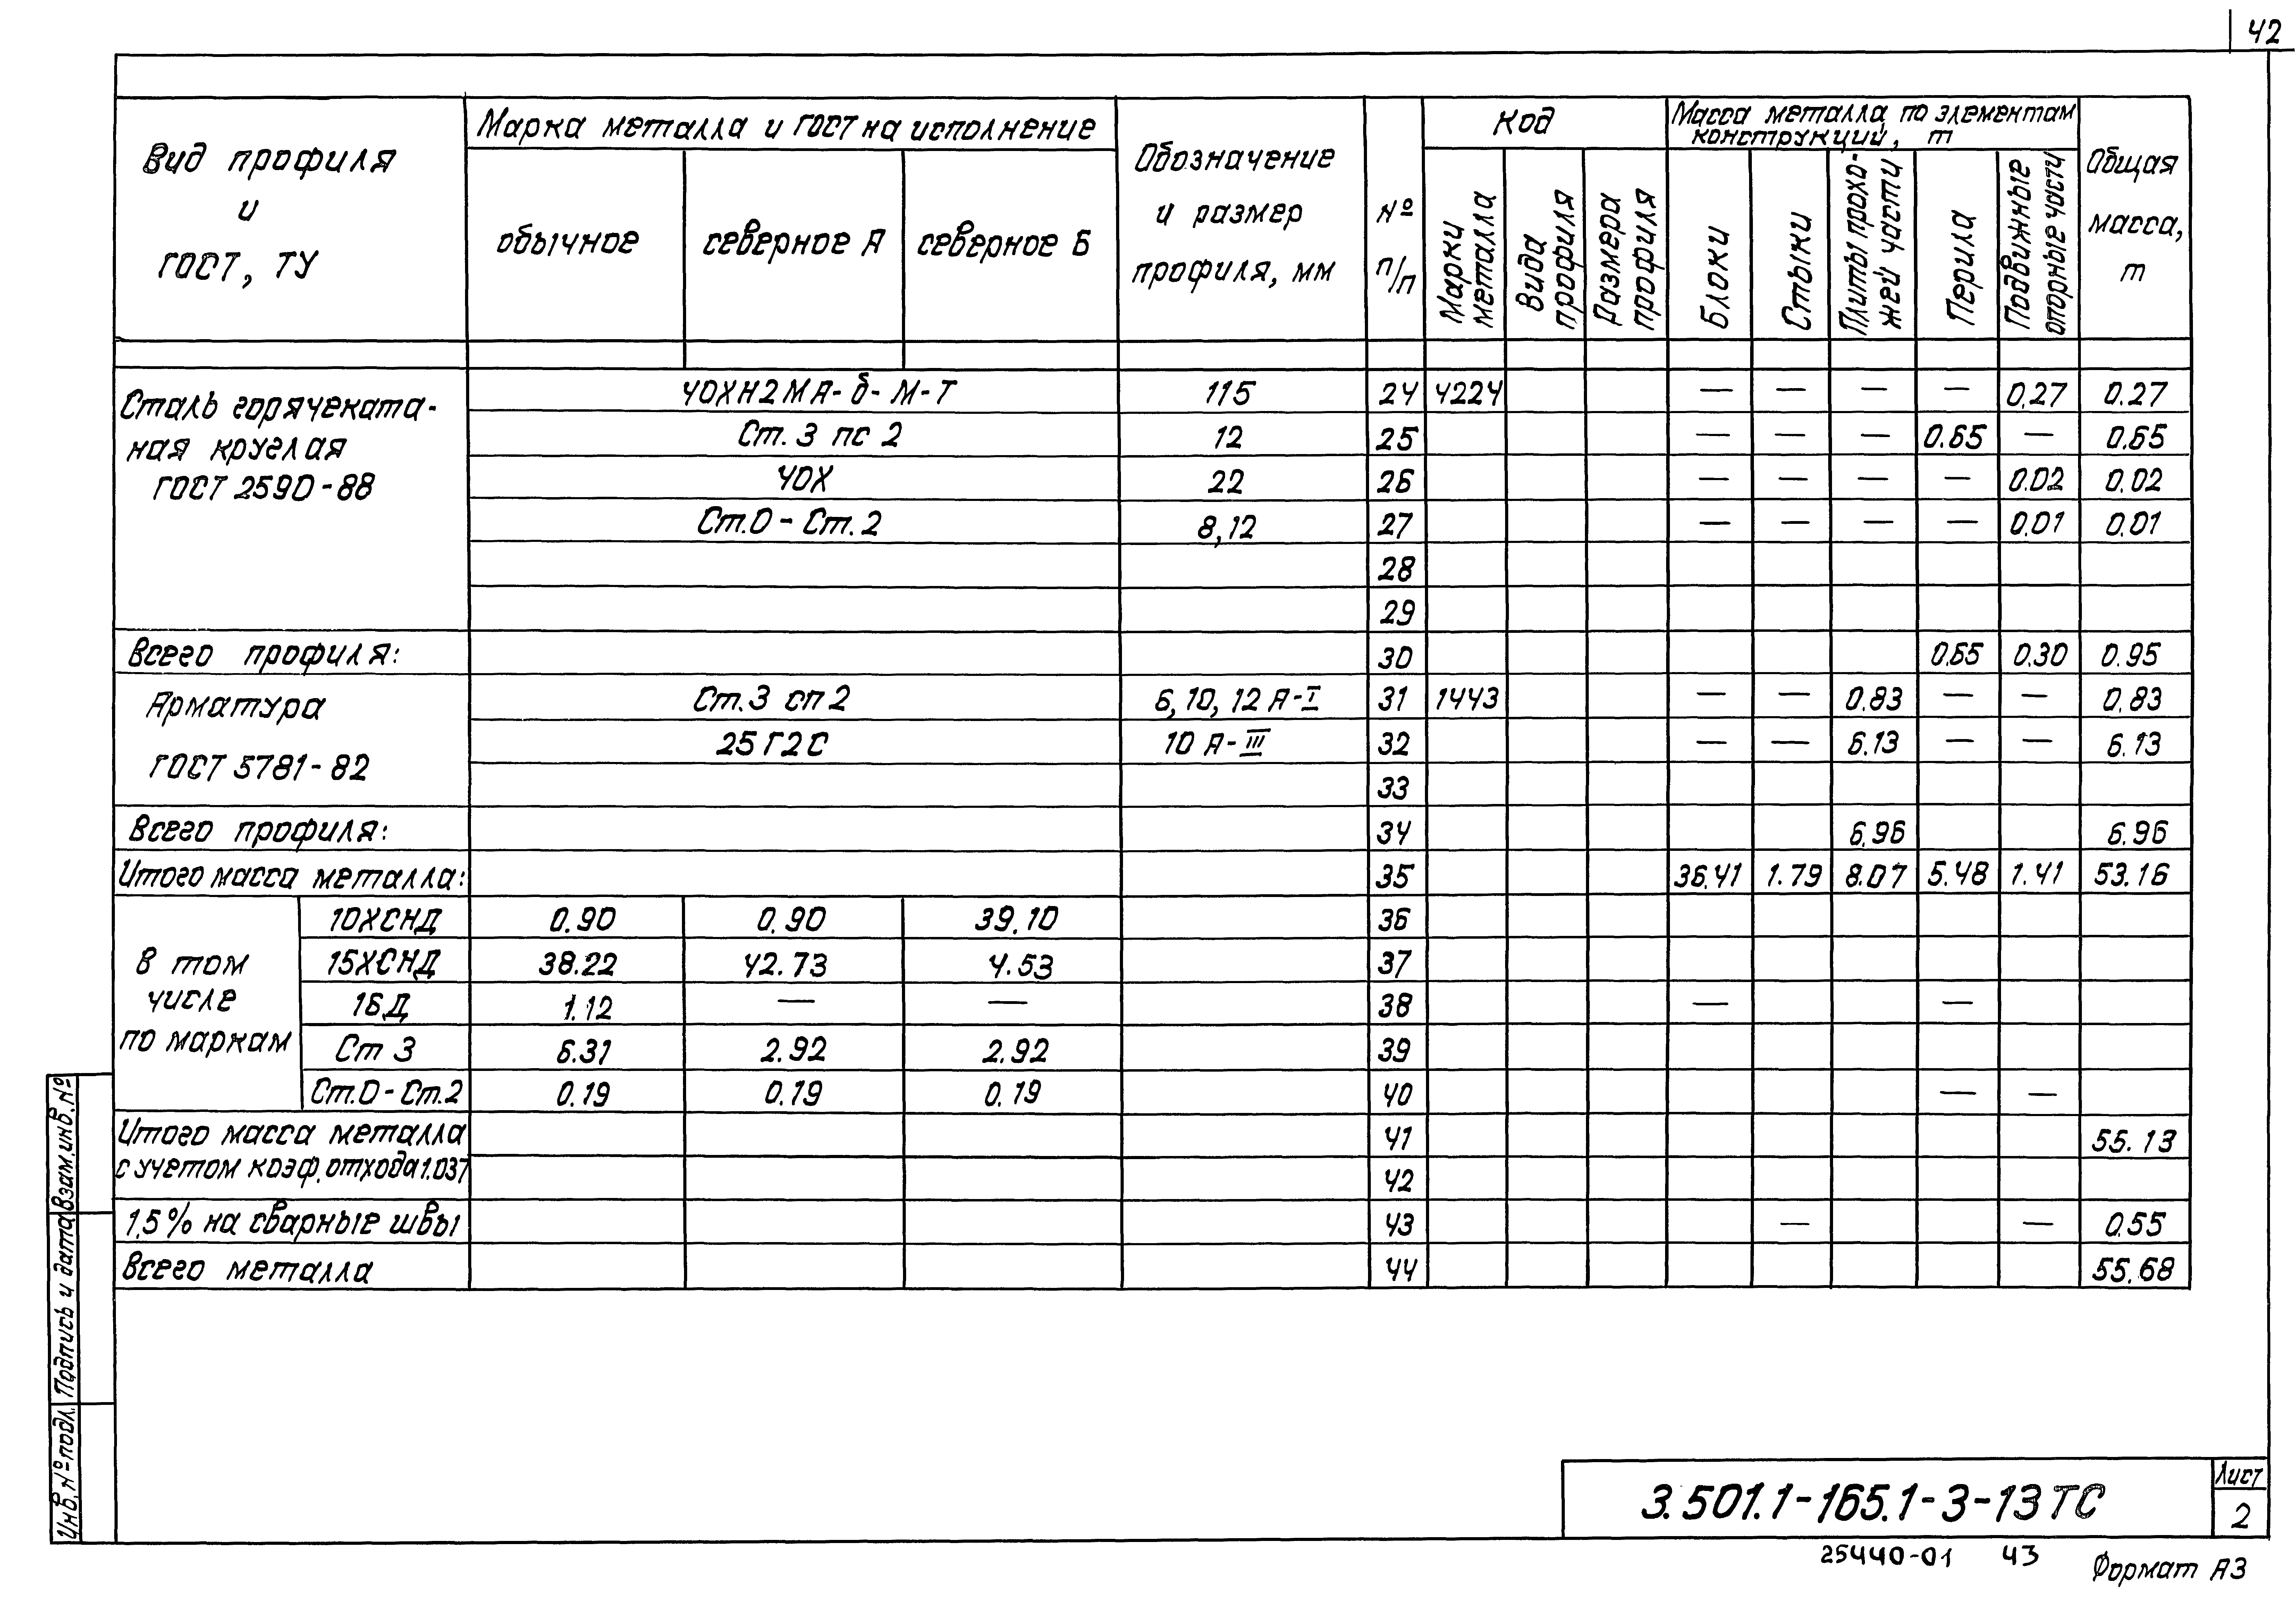 42
Вид профиля и ГОСТ, ТУ
Марка металла и ГОСТ на исполнение
обычное
северное А
северное Б
Обозначение и размер профиля, мм
№ п/п
Код
Марки металла
Вида профиля
Размера профиля
Масса металла по элементам конструкций, т
Блоки
Стыки
Плиты проезжей части
Перила
Подвижные опорные части
Общая масса, т
Сталь горячеката-
ная круглая
ГОСТ 2590-88
40ХН2МА-б-М-Т 115 24 4224 — — — — 0.27 0.27
Ст. 3 пс 2 12 25 — — — 0.65 — 0.65
40Х 22 26 — — — — 0.02 0.02
Ст.0 - Ст.2 8,12 27 — — — — 0.01 0.01
28
29
Всего профиля: 30 0.65 0.30 0.95
Арматура
ГОСТ 5781-82
Ст.3 сп 2 6, 10, 12 А-I 31 1443 — — 0.83 — — 0.83
25Г2С 10 А-III 32 — — 6.13 — — 6.13
33
Всего профиля: 34 6.96 6.96
Итого масса металла: 35 36.41 1.79 8.07 5.48 1.41 53.16
В том
числе
по маркам
10ХСНД 0.90 0.90 39.10 36
15ХСНД 38.22 42.73 4.53 37
16Д 1.12 — — 38 — —
Ст 3 6.31 2.92 2.92 39
Ст.0 - Ст.2 0.19 0.19 0.19 40 — —
Итого масса металла 41 55.13
с учетом коэф. отхода 1.037 42
1,5% на сварные швы 43 — — 0.55
Всего металла 44 55.68
Взам. инв. №
Подпись и дата
Инв. № подл.
3.501.1-165.1-3-13 ТС
Лист
2
25440-01 43
Формат А3